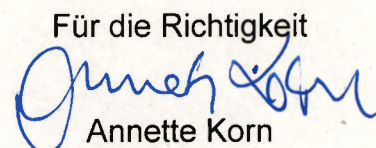 Für die Richtigkeit
Annette Korn
Annette Korn